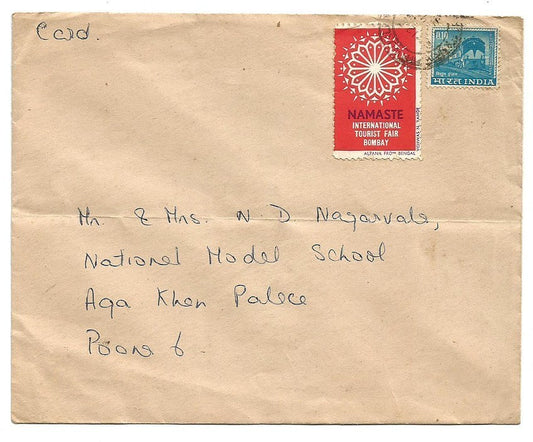 Card.
NAMASTE
INTERNATIONAL
TOURIST FAIR
BOMBAY
ALPANA FROM BENGAL
0.10
भारत INDIA
Mr. & Mrs. N. D Nagarvala,
National Model School
Aga Khan Palace
Poona 6